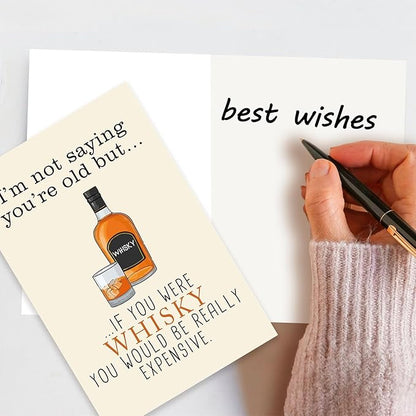 I'm not saying
you're old but...
WHISKY
...IF YOU WERE
WHISKY
YOU WOULD BE REALLY
EXPENSIVE.
best wishes